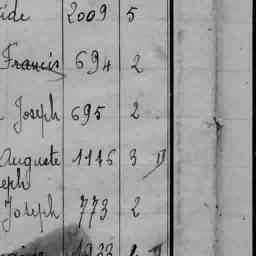 ide 2009 5
Francis 694 2
Joseph 695 2
Auguste 1146 3 D
eph
Joseph 773 2